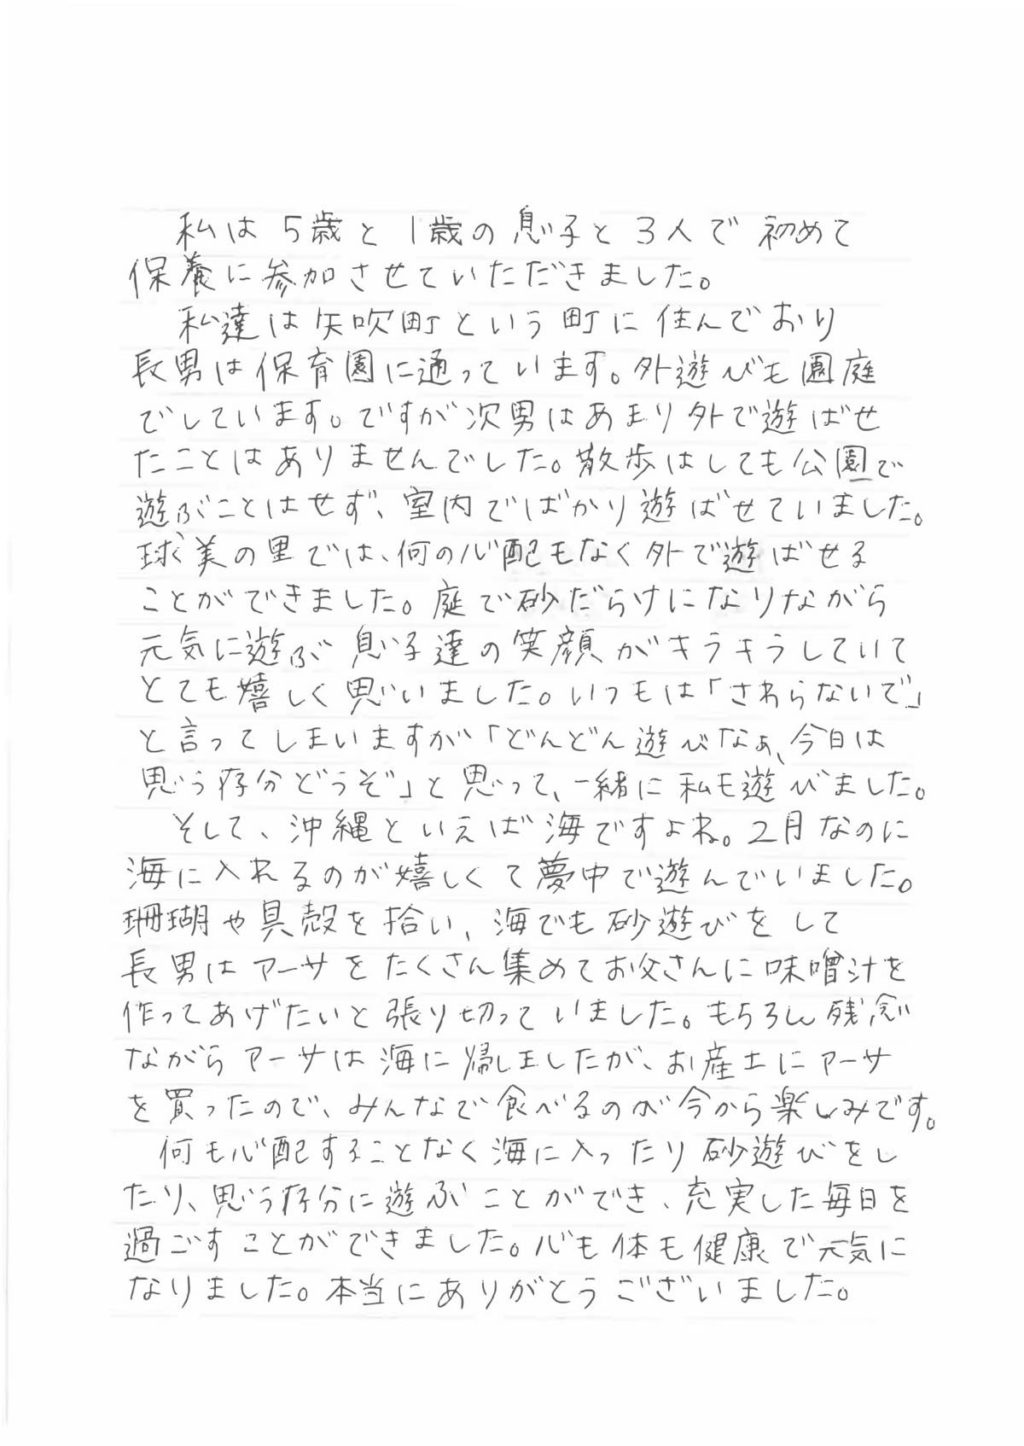 私は5歳と1歳の息子と3人で初めて
保養に参加させていただきました。
私達は矢吹町という町に住んでおり
長男は保育園に通っています。外遊びも園庭
でしています。ですが次男はあまり外で遊ばせ
たことはありませんでした。散歩はしても公園で
遊ぶことはせず、室内でばかり遊ばせていました。
球美の里では、何の心配もなく外で遊ばせる
ことができました。庭で砂だらけになりながら
元気に遊ぶ息子達の笑顔がキラキラしていて
とても嬉しく思いました。いつもは「さわらないで」
と言ってしまいますが「どんどん遊びなぁ、今日は
思う存分どうぞ」と思って、一緒に私も遊びました。
そして、沖縄といえば海ですよね。2月なのに
海に入れるのが嬉しくて夢中で遊んでいました。
珊瑚や貝殻を拾い、海でも砂遊びをして
長男はアーサをたくさん集めてお父さんに味噌汁を
作ってあげたいと張り切っていました。もちろん残念
ながらアーサは海に帰しましたが、お産土にアーサ
を買ったので、みんなで食べるのが今から楽しみです。
何も心配することなく海に入ったり砂遊びをし
たり、思う存分に遊ぶことができ、充実した毎日を
過ごすことができました。心も体も健康で元気に
なりました。本当にありがとうございました。